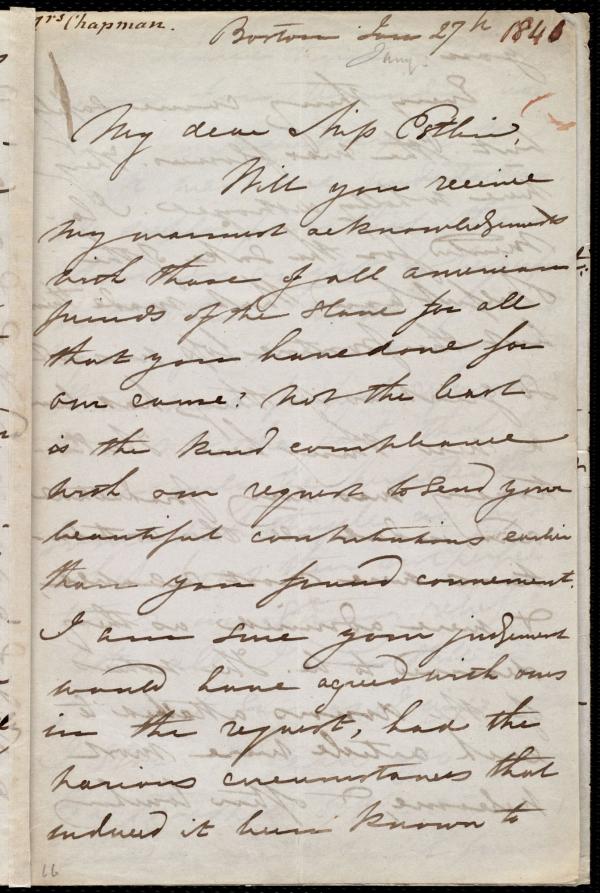 Mrs Chapman.
Boston Jan 27th 1846
Jany.
My dear Miss Estlin,
Will you receive
my warmest acknowledgments
with those of all american
friends of the slave for all
that you have done for
our cause? Not the least
is the kind compliance
with our request to send your
beautiful contributions earlier
than you found convenient.
I am sure your judgement
would have agreed with ours
in the request, had the
various circumstances that
induced it been known to
16